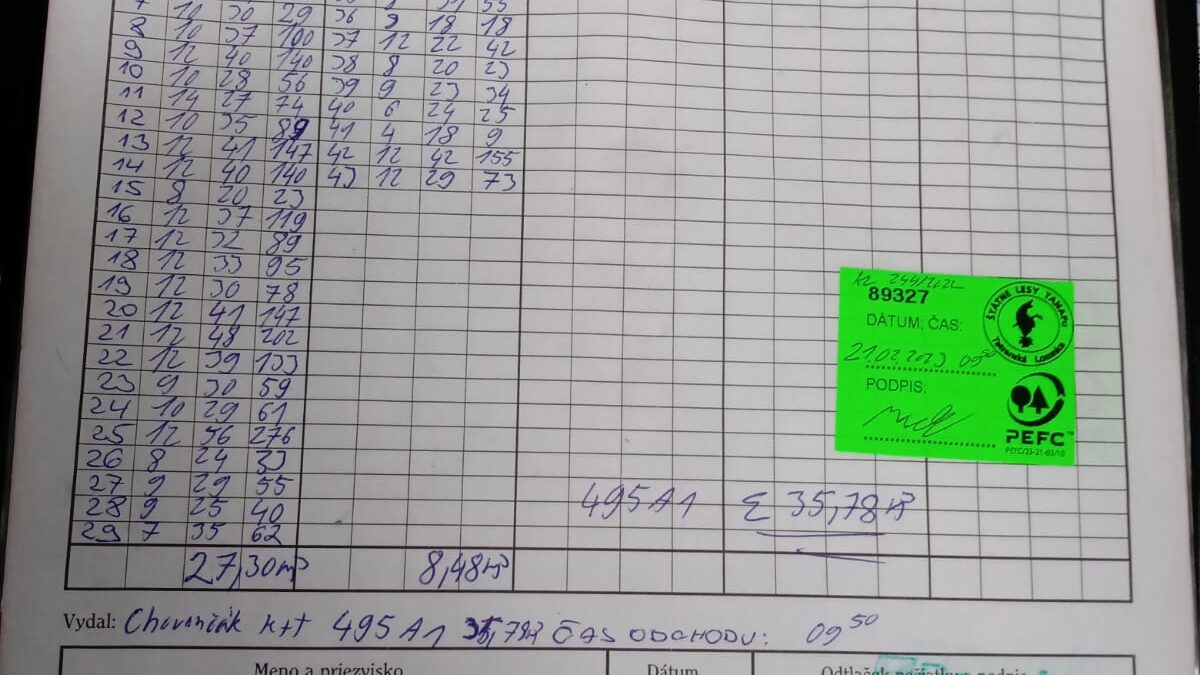 10 30 29 36 9 18 18
8 10 37 100 37 12 22 42
9 12 40 140 38 8 20 23
10 10 28 56 39 9 23 34
11 14 27 74 40 6 24 25
12 10 35 89 41 4 18 9
13 12 41 147 42 12 42 155
14 12 40 140 43 12 29 73
15 8 20 23
16 12 37 119
17 12 32 89
18 12 33 95
19 12 30 78
20 12 41 147
21 12 48 202
22 12 39 133
23 9 30 59
24 10 29 61
25 12 56 276
26 8 24 33
27 9 29 55
28 9 25 40
29 7 35 62
27,30 m³ 8,48 m³
495 A1 Σ 35,78 m³
244/2022
89327
DÁTUM; ČAS:
21.02.2023 09⁵⁰
PODPIS:
ŠTÁTNE LESY TANAPU
Tatranská Lomnica
PEFC™
PEFC/23-21-03/10
Vydal: 495 A1 35,78 m³ ČAS ODCHODU: 09⁵⁰
Meno a priezvisko Dátum Odtlačok pečiatky a podpis